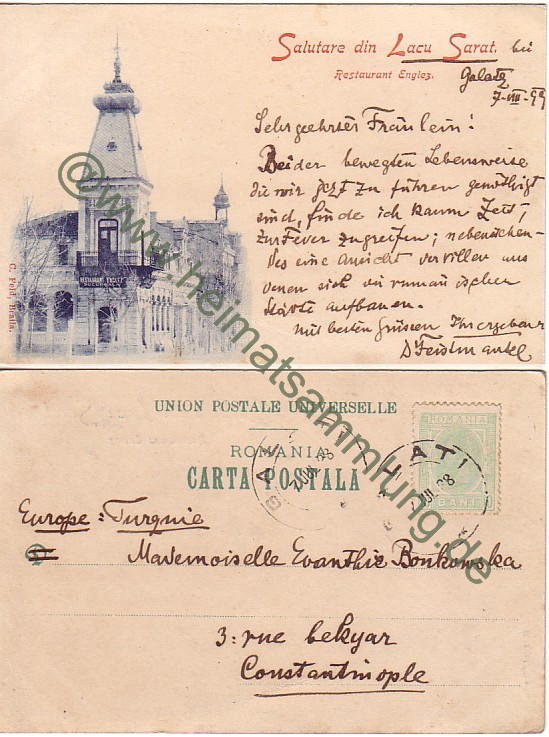 Salutare din Lacu Sarat. bei
Restaurant Englez.
Galatz
7-VIII-99
Sehrgeehrtes Fräulein!
Bei der bewegten Lebensweise
die wir jezt zu führen genöthigt
sind, finde ich kaum Zeit,
zur Feder zugreifen; nebenstehen-
des eine Ansicht der Villen aus
denen sich die rumänischen
Städte aufbauen.
Mit besten Grüssen Ihr ergebener
D Feistmantel
RESTAURANT ENGLEZ
C. Feld, Braila.
©www.heimatsammlung.de
UNION POSTALE UNIVERSELLE
ROMANIA
CARTA POSTALA
ROMANIA
5 BANI 5
GALATI
7 JUL 98
GALATI
Europe: Turquie
Mademoiselle Evanthie Bonkowska
3: rue bekyar
Constantinople